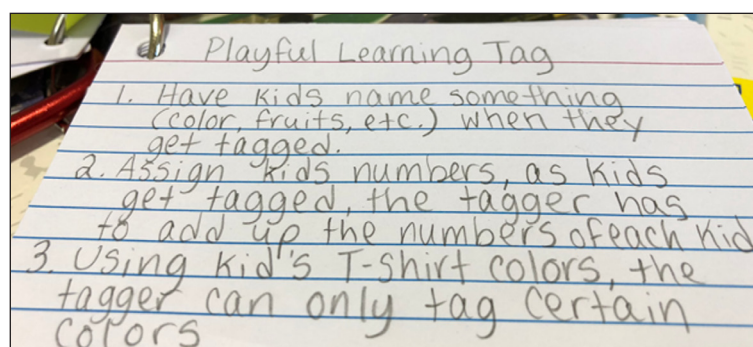 Playful Learning Tag
1. Have kids name something
(color, fruits, etc.) when they
get tagged.
2. Assign kids numbers, as kids
get tagged, the tagger has
to add up the numbers of each kid
3. Using kid's T-shirt colors, the
tagger can only tag certain
colors